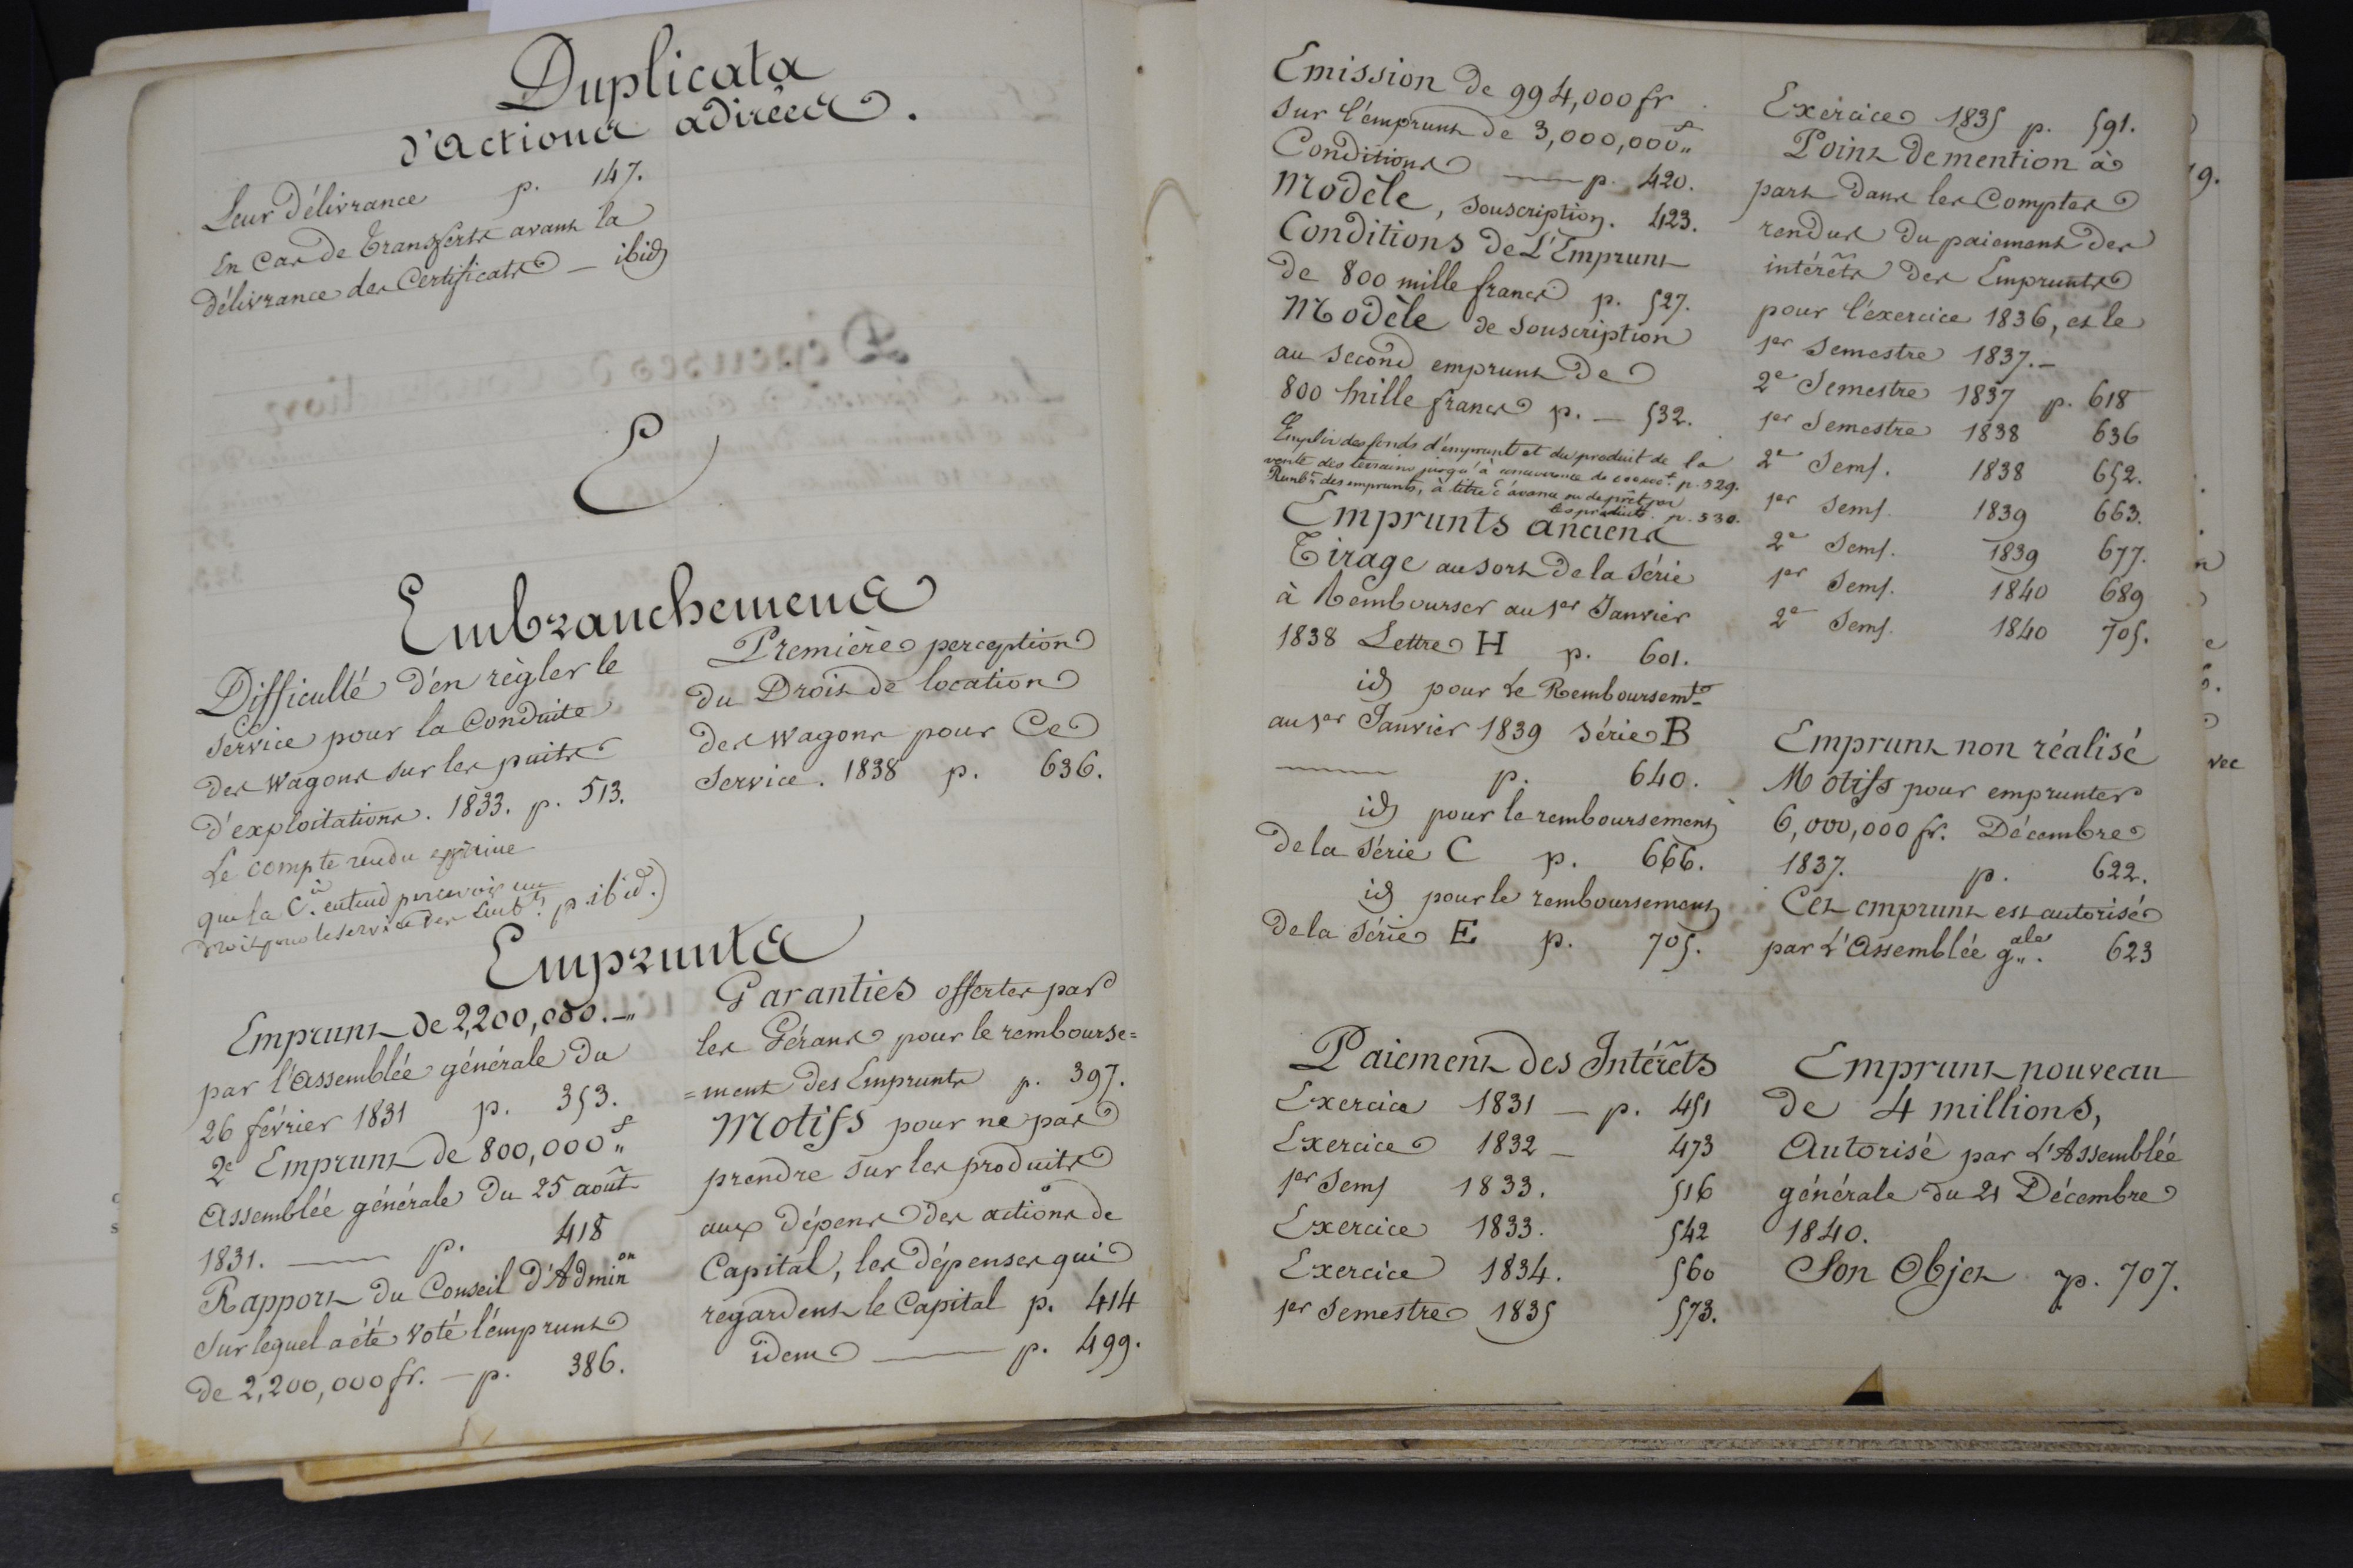 Duplicata
d'Actions adirées.
Leur délivrance p. 147.
En Cas de Transferts avant la
délivrance des Certificats — ibid
E
Embranchemens
Difficulté d'en règler le
Service pour la Conduite
des Wagons sur les puits
d'exploitations. 1833. p. 513.
Le compte rendu exprime
que la Cie entend percevoir un
droit pour le service des Embts. p. ibid.)
Première perception
du Droit de location
des Wagons pour Ce
Service. 1838 p. 636.
Emprunts
Emprunt de 2,200,000.—"
par l'Assemblée générale du
26 février 1831 p. 353.
2e Emprunt de 800,000f"
Assemblée générale du 25 août
1831. — p. 418
Rapport du Conseil d'Adminon
Sur lequel a été voté l'emprunt
de 2,200,000 fr. — p. 386.
Garanties offertes par
les Gérans pour le rembourse=
=ment des Emprunts p. 397.
Motifs pour ne pas
prendre sur les produits
aux dépens des actions de
Capital, les dépenses qui
regardent le Capital p. 414
idem — p. 499.
Emission de 994,000 fr
sur l'émprunt de 3,000,000f"
Conditions — p. 420.
Modèle, souscription. 423.
Conditions de L'Emprunt
de 800 mille francs p. 527.
Modèle de Souscription
au second emprunt de
800 mille francs p. — 532.
Emploi des fonds d'emprunt et du produit de la
vente des terrains jusqu'à concurrence de p. 529.
Rembt des emprunts, à titre d'avance ou de prêt par
les produits. p. 530.
Emprunts anciens
Tirage au sort de la série
à Rembourser au 1er Janvier
1838 Lettre H p. 601.
id pour le Remboursemt
au 1er Janvier 1839 série B
— p. 640.
id pour le remboursement
de la série C p. 666.
id pour le remboursement
de la série E p. 705.
Paiement des Intérêts
Exercice 1831 — p. 451
Exercice 1832 — 473
1er Sems 1833. 516
Exercice 1833. 542
Exercice 1834. 560
1er Semestre 1835 573.
Exercice 1835 p. 591.
Point de mention à
part dans les Comptes
rendus du paiement des
intérêts des Emprunts
pour l'éxercice 1836, et le
1er Semestre 1837.—
2e Semestre 1837 p. 618
1er Semestre 1838 636
2e Sems. 1838 652.
1er Sems. 1839 663.
2e Sems. 1839 677.
1er Sems. 1840 689
2e Sems. 1840 705.
Emprunt non réalisé
Motifs pour emprunter
6,000,000 fr. Décembre
1837. p. 622.
Cet emprunt est autorisé
par L'Assemblée gale. 623
Emprunt nouveau
de 4 millions,
Autorisé par L'Assemblée
générale du 21 Décembre
1840.
Son Objet p. 707.